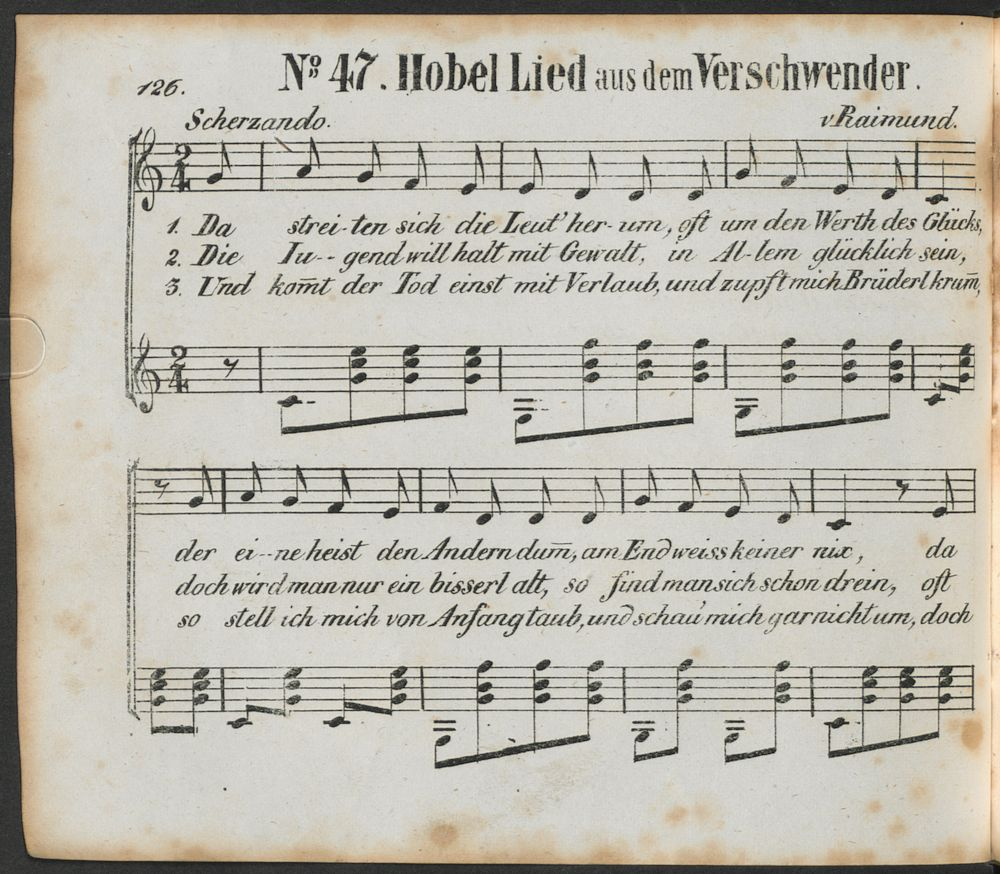 126.
No 47. Hobel Lied aus dem Verschwender.
Scherzando.
v Raimund.
1. Da strei-ten sich die Leut' her-um, oft um den Werth des Glücks,
2. Die Iu--gend will halt mit Gewalt, in Al-lem glücklich sein,
3. Und kom̄t der Tod einst mit Verlaub, und zupft mich Brüderl krum̄,
der ei--ne heist den Andern dum̄, am End weiss keiner nix, da
doch wird man nur ein bisserl alt, so find man sich schon drein, oft
so stell ich mich von Anfang taub, und schau' mich gar nicht um, doch